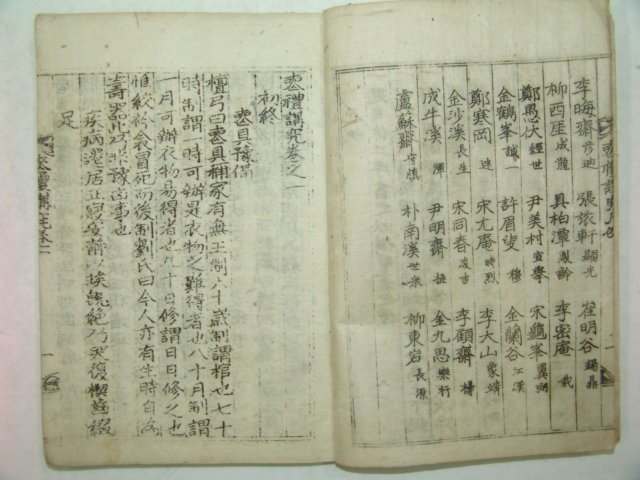 李晦齋 彦迪 張旅軒 顯光 崔明谷 錫鼎
柳西厓 成龍 具柏潭 鳳齡 李密庵 栽
鄭愚伏 經世 尹美村 宣擧 宋龜峯 翼弼
金鶴峯 誠一 許眉叟 穆 金蘭谷 江漢
鄭寒岡 逑 宋尤庵 時烈 李大山 象靖
金沙溪 長生 宋同春 浚吉 李顧齋 槾
成牛溪 渾 尹明齋 拯 金九思 樂行
盧蘇齋 守愼 朴南溪 世采 柳東岩 長源
喪禮講究卷之一
初終
喪具豫備
檀弓曰喪具稱家有無王制六十歲制謂棺也七十
時制謂一時可辦是衣物之難得者也八十月制謂
一月可辦衣物易得者也九十日修謂日日修之也
惟絞紟衾冒死而後制劉氏曰今人亦有生時自爲
壽器此乃非豫凶事也
疾病遷居正寢 旣絶乃哭復楔齒綴
足